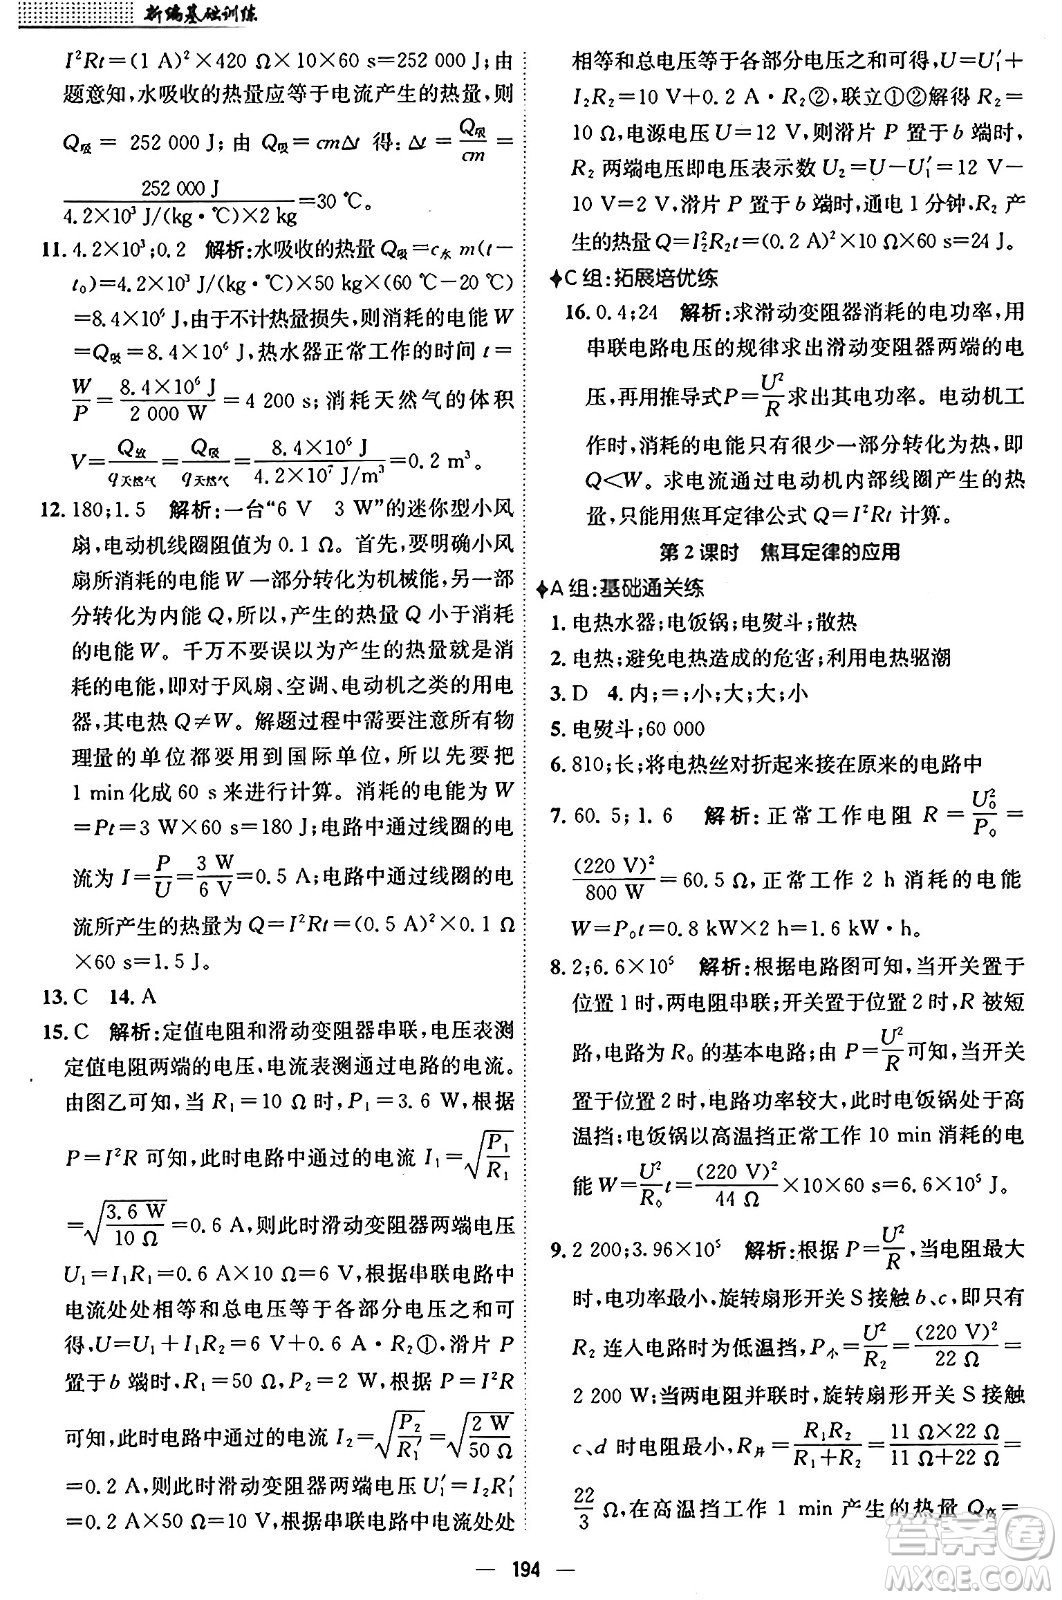 新编基础训练
I²Rt=(1 A)²×420 Ω×10×60 s=252 000 J;由
题意知,水吸收的热量应等于电流产生的热量,则
Q吸 = 252 000 J;由 Q吸=cmΔt 得:Δt = Q吸/cm =
252 000 J/4.2×10³ J/(kg·℃)×2 kg=30 ℃。
11. 4.2×10³;0.2 解析:水吸收的热量 Q吸=c水 m(t-
t₀)=4.2×10³ J/(kg·℃)×50 kg×(60 ℃-20 ℃)
=8.4×10⁶ J,由于不计热量损失,则消耗的电能 W
=Q吸=8.4×10⁶ J,热水器正常工作的时间 t=
W/P=8.4×10⁶ J/2 000 W=4 200 s;消耗天然气的体积
V=Q放/q天然气=Q吸/q天然气=8.4×10⁶ J/4.2×10⁷ J/m³=0.2 m³。
12. 180;1.5 解析:一台“6 V 3 W”的迷你型小风
扇,电动机线圈阻值为 0.1 Ω。首先,要明确小风
扇所消耗的电能 W 一部分转化为机械能,另一部
分转化为内能 Q,所以,产生的热量 Q 小于消耗
的电能 W。千万不要误以为产生的热量就是消
耗的电能,即对于风扇、空调、电动机之类的用电
器,其电热 Q≠W。解题过程中要注意所有物
理量的单位都要用到国际单位,所以先要把
1 min化成 60 s来进行计算。消耗的电能为 W
=Pt=3 W×60 s=180 J;电路中通过线圈的电
流为 I=P/U=3 W/6 V=0.5 A;电路中通过线圈的电
流所产生的热量为 Q=I²Rt=(0.5 A)²×0.1 Ω
×60 s=1.5 J。
13. C 14. A
15. C 解析:定值电阻和滑动变阻器串联,电压表测
定值电阻两端的电压,电流表测通过电路的电流。
由图乙可知,当 R₁=10 Ω时,P₁=3.6 W,根据
P=I²R 可知,此时电路中通过的电流 I₁=√(P₁/R₁)
=√(3.6 W/10 Ω)=0.6 A,则此时滑动变阻器两端电压
U₁=I₁R₁=0.6 A×10 Ω=6 V,根据串联电路中
电流处处相等和总电压等于各部分电压之和可
得,U=U₁+I₁R₂=6 V+0.6 A·R₂①,滑片 P
置于 b 端时,R₁=50 Ω,P₂=2 W,根据 P=I²R
可知,此时电路中通过的电流 I₂=√(P₂/R₁′)=√(2 W/50 Ω)
=0.2 A,此时滑动变阻器两端电压 U₁′=I₂R₁′
=0.2 A×50 Ω=10 V,根据串联电路中电流处处
相等和总电压等于各部分电压之和可得,U=U₁′+
I₂R₂=10 V+0.2 A·R₂②,联立①②解得 R₂=
10 Ω,电源电压 U=12 V,则滑片 P 置于 b 端时,
R₂ 两端电压即电压表示数 U₂=U-U₁′=12 V
-10 V=2 V,滑片 P 置于 b端时,通电 1 分钟,R₂ 产
生的热量 Q=I₂²R₂t=(0.2 A)²×10 Ω×60 s=24 J。
C 组:拓展培优练
16. 0.4;24 解析:求滑动变阻器消耗的电功率,用
串联电路电压的规律求出滑动变阻器两端的电
压,再用推导式P=U²/R求出电功率。电动机工
作时,消耗的电能只有很少一部分转化为热,即
Q<W。求电流通过电动机内部线圈产生的热
量,只能用焦耳定律公式 Q=I²Rt 计算。
第 2 课时 焦耳定律的应用
A 组:基础通关练
1. 电热水器;电饭锅;电熨斗;散热
2. 电热;避免电热造成的危害;利用电热驱潮
3. D 4. 内;=;小;大;大;小
5. 电熨斗;60 000
6. 810;长;将电热丝对折起来接在原来的电路中
7. 60.5;1.6 解析:正常工作电阻 R=U₀²/P₀=
(220 V)²/800 W=60.5 Ω,正常工作 2 h 消耗的电能
W=P₀t=0.8 kW×2 h=1.6 kW·h。
8. 2;6.6×10⁵ 解析:根据电路图可知,当开关置于
位置 1 时,两电阻串联;开关置于位置 2时,R 被短
路,电路为 R₀ 的基本电路;由 P=U²/R可知,当开关
置于位置 2 时,电路功率较大,此时电饭锅处于高
温挡;电饭锅以高温挡正常工作 10 min 消耗的电
能 W=U²/R₀ t=(220 V)²/44 Ω×10×60 s=6.6×10⁵ J。
9. 2 200;3.96×10⁵ 解析:根据 P=U²/R,当电阻最大
时,电功率最小,旋转扇形开关 S 接触 b、c,只有
R₂ 连入电路时为低温挡,P小=U²/R₂=(220 V)²/22 Ω=
2 200 W;当两电阻并联时,旋转扇形开关 S 接触
c、d 时电阻最小,R并=R₁R₂/(R₁+R₂)=11 Ω×22 Ω/(11 Ω+22 Ω)=
22/3 Ω,在高温挡工作 1 min 产生的热量 Q高=
— 194 —
答案圈